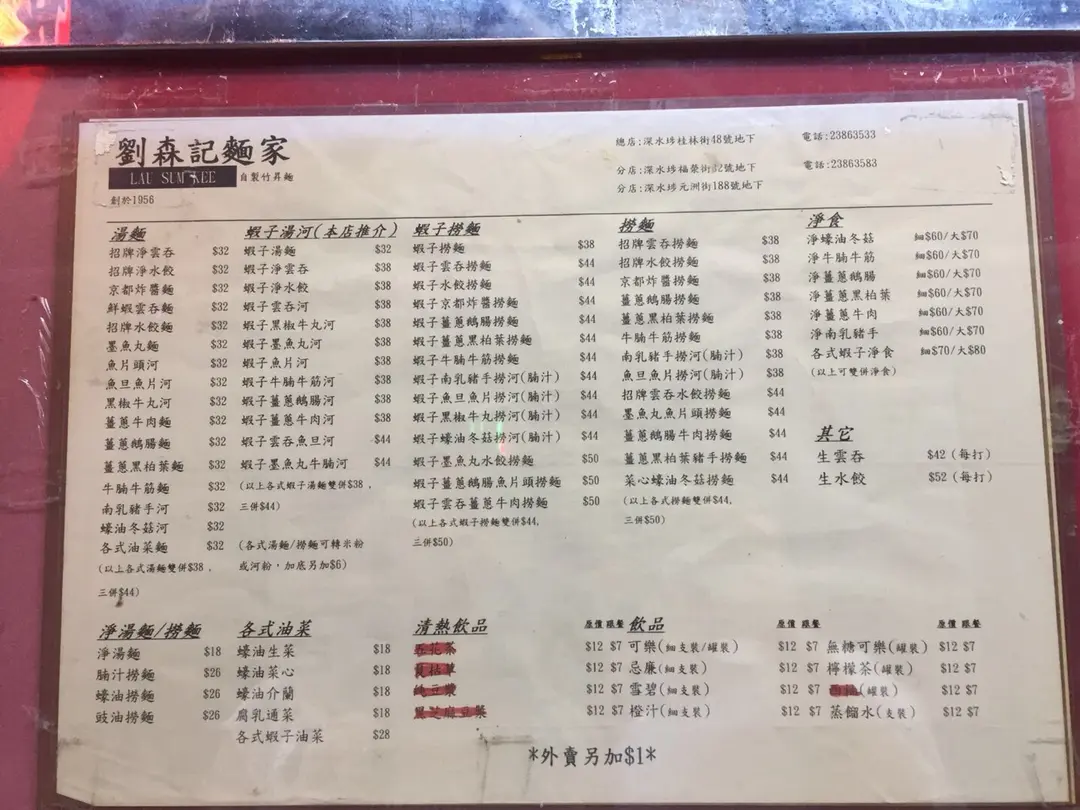 劉森記麵家
LAU SUM KEE 自製竹昇麵
創於1956
總店:深水埗桂林街48號地下 電話:23863533
分店:深水埗福榮街82號地下 電話:23863583
分店:深水埗元洲街188號地下
湯麵
招牌淨雲吞 $32
招牌淨水餃 $32
京都炸醬麵 $32
鮮蝦雲吞麵 $32
招牌水餃麵 $32
墨魚丸麵 $32
魚片頭河 $32
魚旦魚片河 $32
黑椒牛丸河 $32
薑蔥牛肉麵 $32
薑蔥鵝腸麵 $32
薑蔥黑柏葉麵 $32
牛腩牛筋麵 $32
南乳豬手河 $32
蠔油冬菇河 $32
各式油菜麵 $32
(以上各式湯麵雙併$38，
三併$44)
蝦子湯河(本店推介)
蝦子湯麵 $32
蝦子淨雲吞 $38
蝦子淨水餃 $38
蝦子雲吞河 $38
蝦子黑椒牛丸河 $38
蝦子墨魚丸河 $38
蝦子魚片河 $38
蝦子牛腩牛筋河 $38
蝦子薑蔥鵝腸河 $38
蝦子薑蔥牛肉河 $38
蝦子雲吞魚旦河 $44
蝦子墨魚丸牛腩河 $44
(以上各式蝦子湯麵雙併$38，
三併$44)
(各式湯麵/撈麵可轉米粉
或河粉，加底另加$6)
蝦子撈麵
蝦子撈麵 $38
蝦子雲吞撈麵 $44
蝦子水餃撈麵 $44
蝦子京都炸醬撈麵 $44
蝦子薑蔥鵝腸撈麵 $44
蝦子薑蔥黑柏葉撈麵 $44
蝦子牛腩牛筋撈麵 $44
蝦子南乳豬手撈河(腩汁) $44
蝦子魚旦魚片撈河(腩汁) $44
蝦子黑椒牛丸撈河(腩汁) $44
蝦子蠔油冬菇撈河(腩汁) $44
蝦子墨魚丸水餃撈麵 $50
蝦子薑蔥鵝腸魚片頭撈麵 $50
蝦子雲吞薑蔥牛肉撈麵 $50
(以上各式蝦子撈麵雙併$44,
三併$50)
撈麵
招牌雲吞撈麵 $38
招牌水餃撈麵 $38
京都炸醬撈麵 $38
薑蔥鵝腸撈麵 $38
薑蔥黑柏葉撈麵 $38
牛腩牛筋撈麵 $38
南乳豬手撈河(腩汁) $38
魚旦魚片撈河(腩汁) $38
招牌雲吞水餃撈麵 $44
墨魚丸魚片頭撈麵 $44
薑蔥鵝腸牛肉撈麵 $44
薑蔥黑柏葉豬手撈麵 $44
菜心蠔油冬菇撈麵 $44
(以上各式撈麵雙併$44,
三併$50)
淨食
淨蠔油冬菇 細$60/大$70
淨牛腩牛筋 細$60/大$70
淨薑蔥鵝腸 細$60/大$70
淨薑蔥黑柏葉 細$60/大$70
淨薑蔥牛肉 細$60/大$70
淨南乳豬手 細$60/大$70
各式蝦子淨食 細$70/大$80
(以上可雙併淨食)
其它
生雲吞 $42(每打)
生水餃 $52(每打)
淨湯麵/撈麵
淨湯麵 $18
腩汁撈麵 $26
蠔油撈麵 $26
豉油撈麵 $26
各式油菜
蠔油生菜 $18
蠔油菜心 $18
蠔油介蘭 $18
腐乳通菜 $18
各式蝦子油菜 $28
清熱飲品 原價 跟餐
$12 $7
$12 $7
$12 $7
$12 $7
飲品 原價 跟餐 原價 跟餐
可樂(細支裝/罐裝) $12 $7 無糖可樂(罐裝) $12 $7
忌廉(細支裝) $12 $7 檸檬茶(罐裝) $12 $7
雪碧(細支裝) $12 $7 (罐裝) $12 $7
橙汁(細支裝) $12 $7 蒸餾水(支裝) $12 $7
*外賣另加$1*